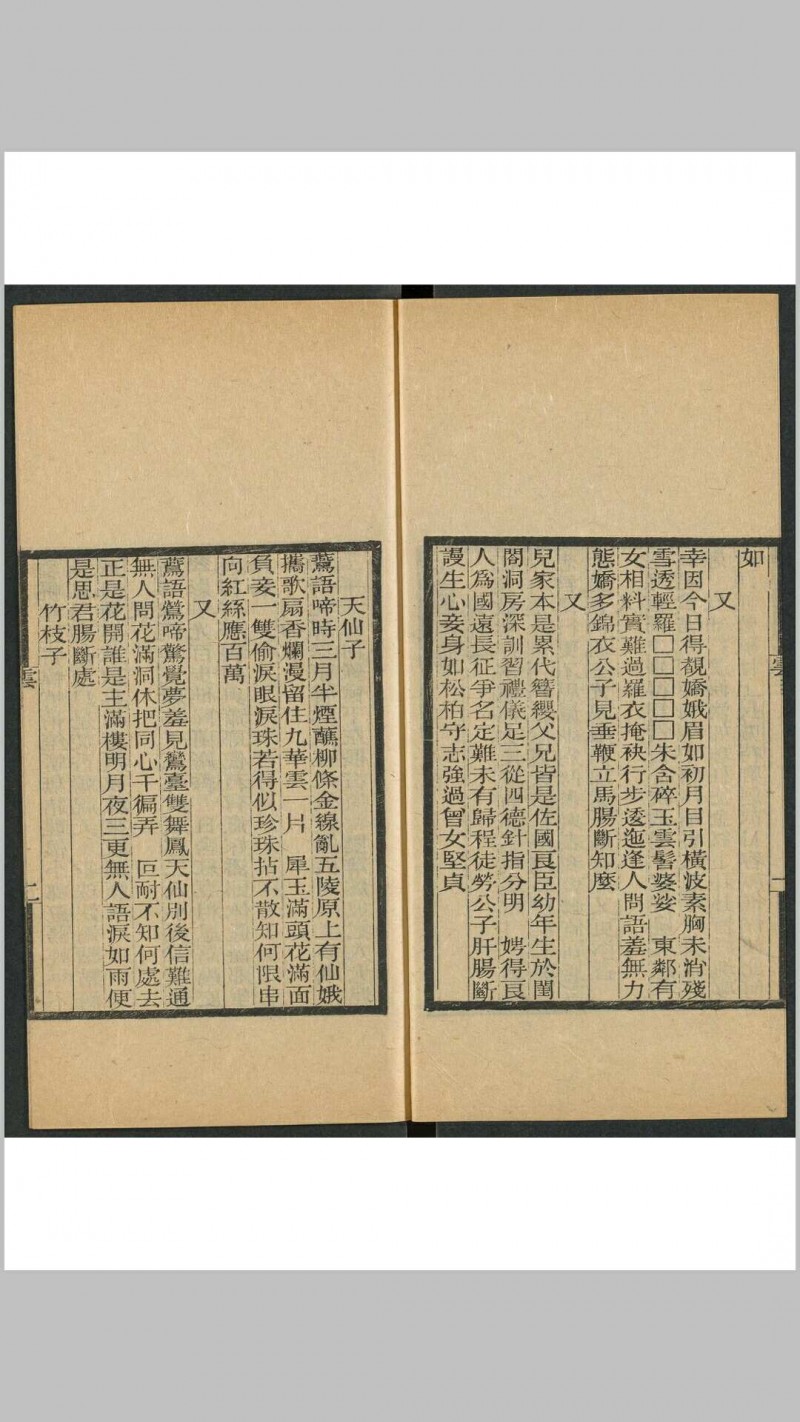 如
又
幸因今日得覩嬌娥眉如初月目引橫波素胸未消殘
雪透輕羅□□□□□朱含碎玉雲髻婆娑　東鄰有
女相料實難過羅衣掩袂行步逶迤逢人問語羞無力
態嬌多錦衣公子見垂鞭立馬腸斷知麼
又
兒家本是累代簪纓父兄皆是佐國良臣幼年生於閨
閣洞房深訓習禮儀足三從四德針指分明　娉得良
人爲國遠長征爭名定難未有歸程徒勞公子肝腸斷
謾生心妾身如松柏守志強過曾女堅貞
雲
二
天仙子
鷰語啼時三月半煙蘸柳條金線亂五陵原上有仙娥
攜歌扇香爛漫留住九華雲一片　犀玉滿頭花滿面
負妾一雙偷淚眼淚珠若得似珍珠拈不散知何限串
向紅絲應百萬
又
鷰語鶯啼驚覺夢羞見鸞臺雙舞鳳天仙別後信難通
無人問花滿洞休把同心千徧弄　叵耐不知何處去
正是花開誰是主滿樓明月夜三更無人語淚如雨便
是思君腸斷處
竹枝子
雲
二